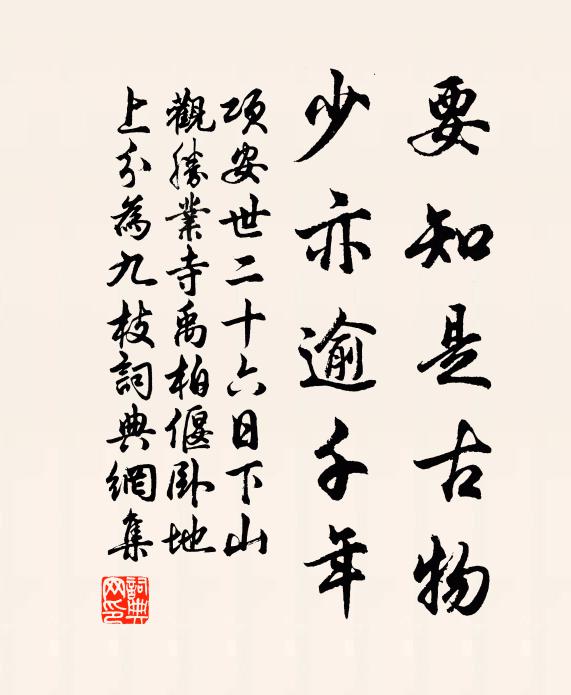 要知是古物
少亦逾千年
项安世二十六日下山
觀勝業寺禹柏偃卧地
上分為九枝詞典網集
詞典网印